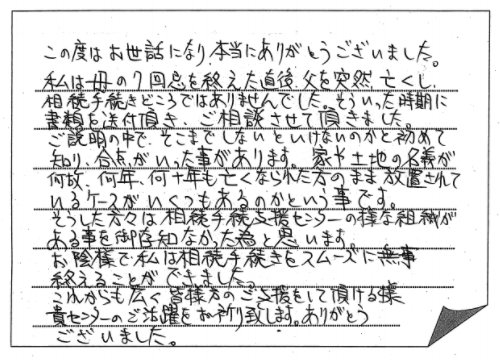 この度はお世話になり、本当にありがとうございました。
私は母の7回忌を終えた直後、父を突然亡くし、
相続手続きどころではありませんでした。そういった時期に
書類を送付頂き、ご相談させて頂きました。
ご説明の中で、そこまでしないといけないのかと初めて
知り、合点がいった事があります。家や土地の名義が
何故、何年、何十年も亡くなられた方のまま放置されて
いるケースがいくつもあるのかという事です。
そうした方々は相続手続支援センターの様な組織が
ある事を御存知なかった為と思います。
お陰様で私は相続手続きをスムーズに無事
終えることができました。
これからも広く皆様方のご支援をして頂ける様
貴センターのご活躍をお祈り致します。ありがとう
ございました。